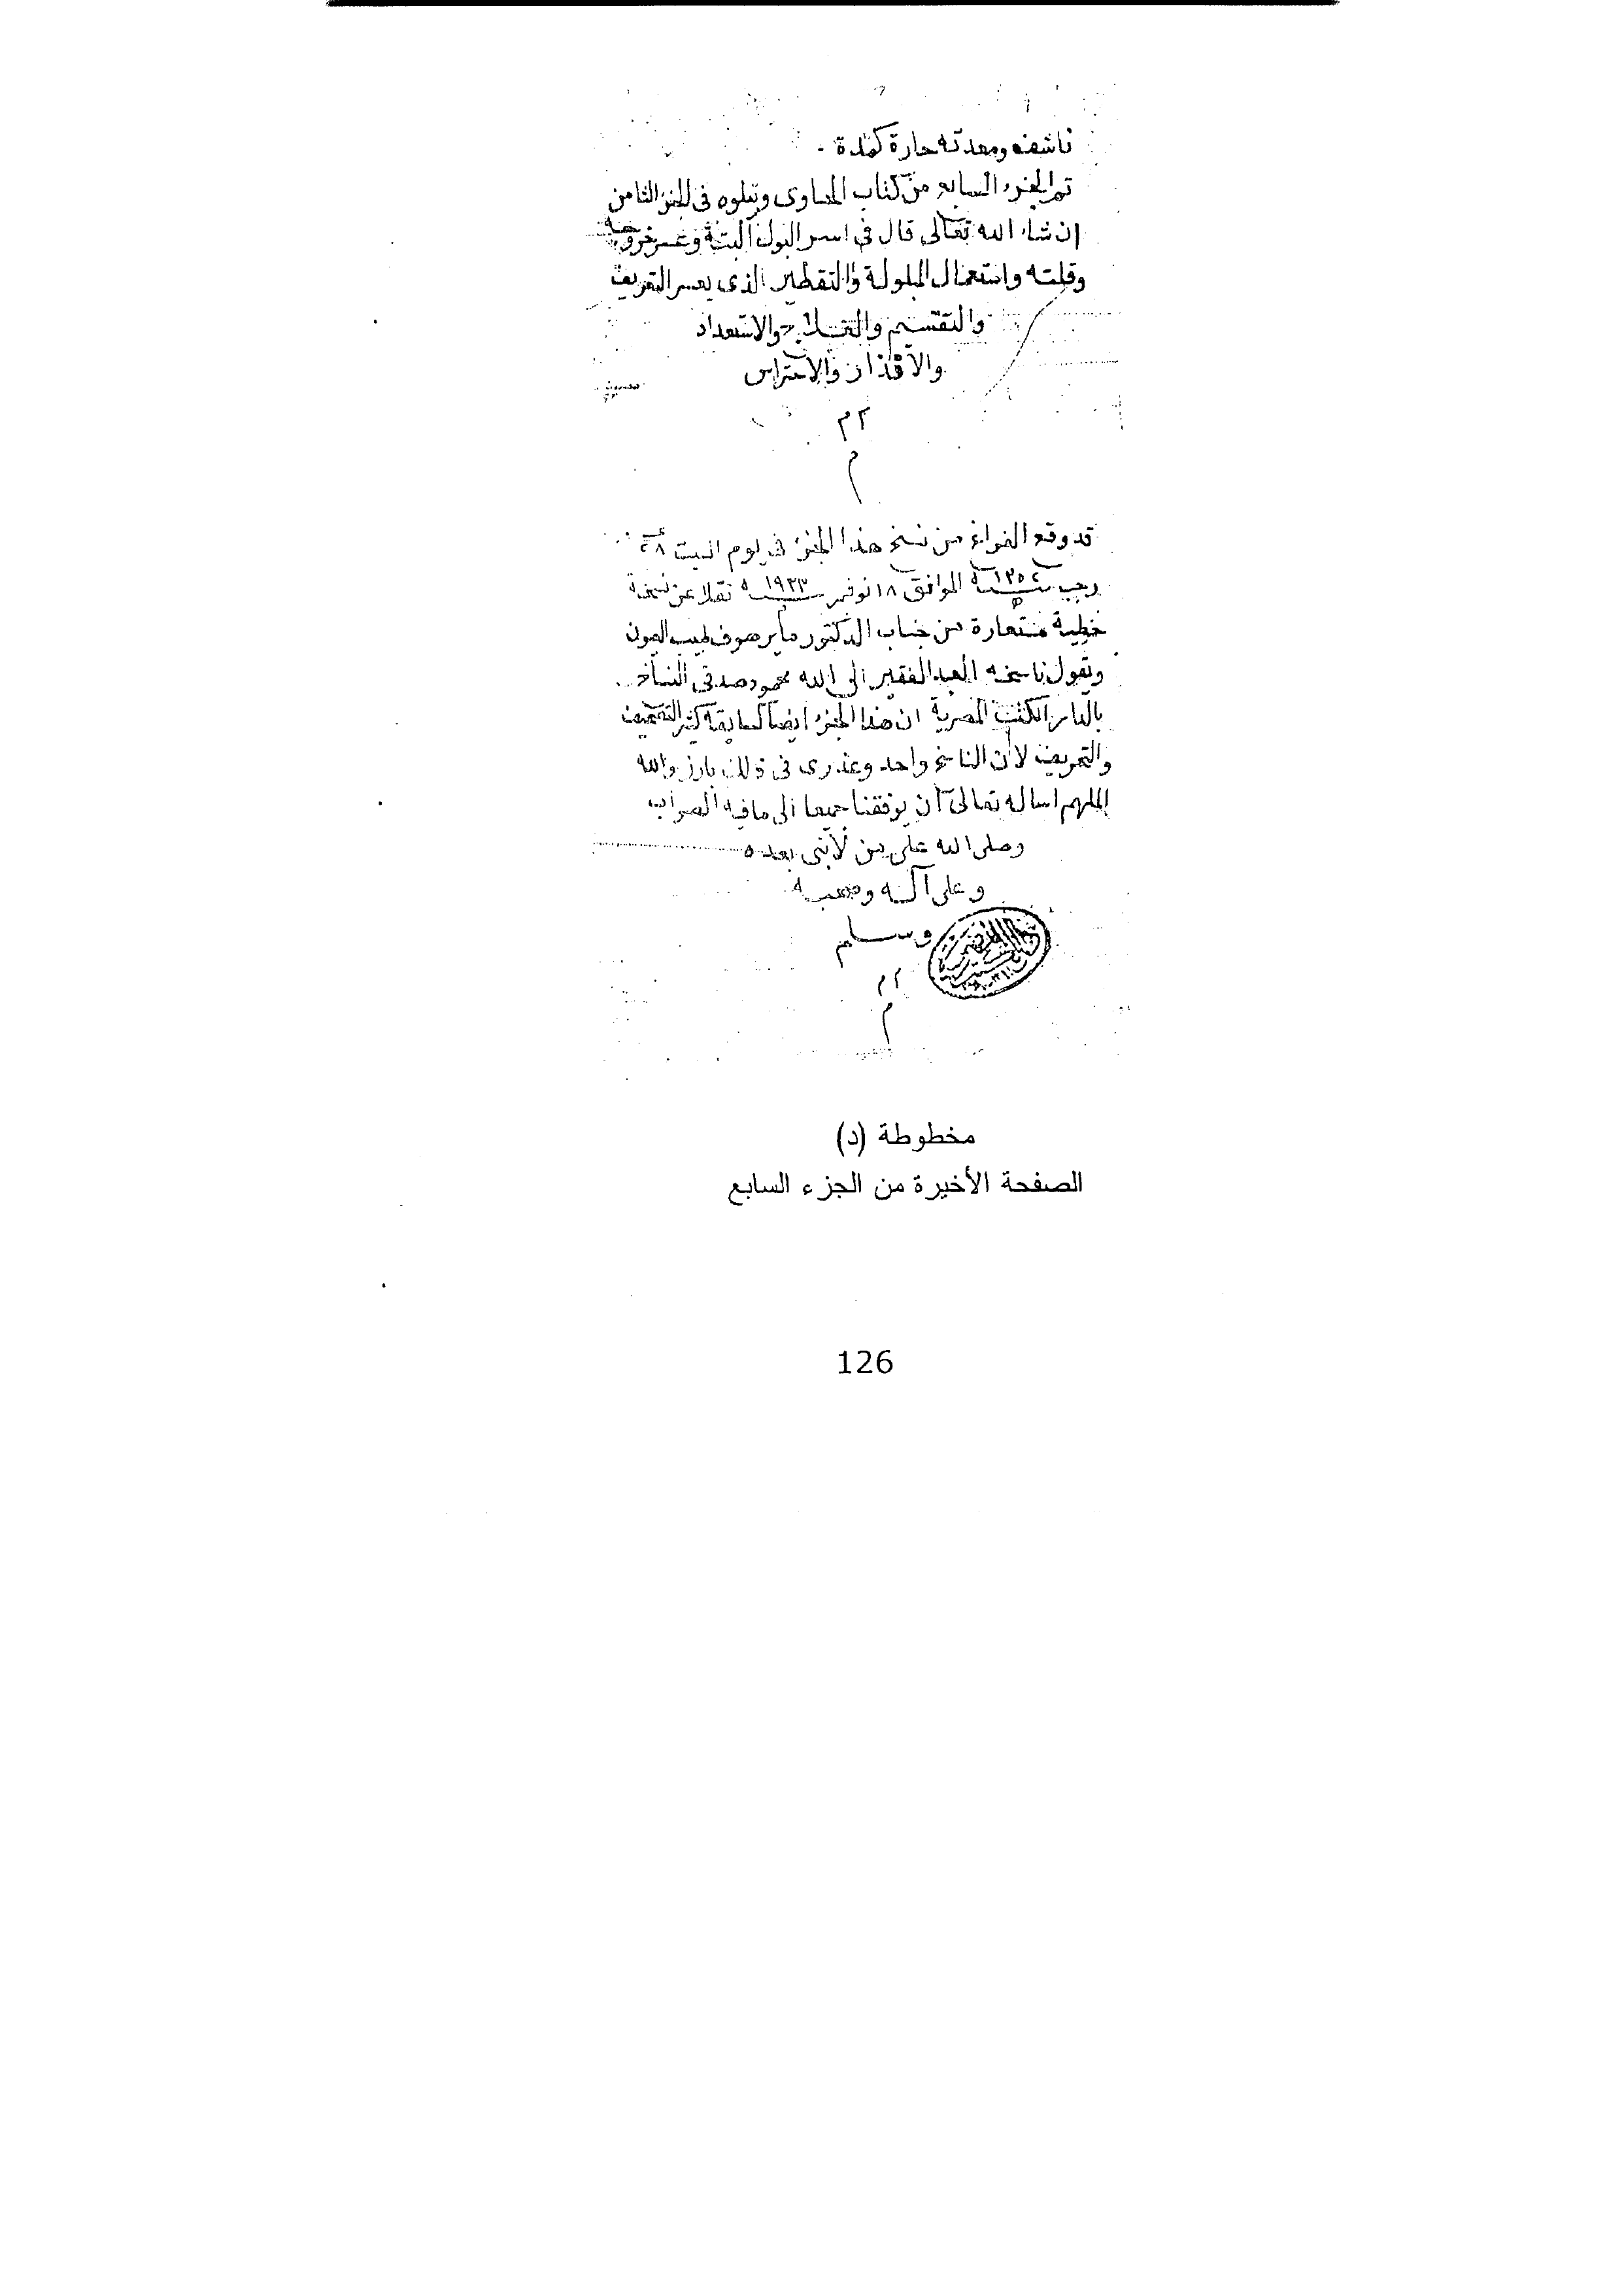 ناشفه ومعدته حارة كمدة .
تم الجزء السابع من كتاب الحاوى ويتلوه فى الجزء الثامن
ان شاء الله تعالى قال فى اسر البول البتة وعسر خروجه
وقلته واستعمال المبلولة والتقطير الذى يعسر التعريف
والتقسيم والعلاج والاستعداد
والانذار والاحتراس
٢م
م
قد وقع الفراغ من نسخ هذا الجزء فى يوم السبت ٢٨
رجب سنة ١٣٥٢ ه الموافق ١٨ نوفمبر سنة ١٩٣٣ نقلا عن نسخة
خطية مستعارة من جناب الدكتور مايرهوف طبيب العيون
ويقول ناسخه العبد الفقير الى الله محمود صدقى النساخ
بالدار الكتب المصرية ان هذا الجزء ايضا كسابقه كثير التصحيف
والتحريف لأن الناسخ واحد وعذرى فى ذلك بارز والله
الملهم اساله تعالى أن يوفقنا جميعا الى ما فيه الصواب
وصلى الله على من لا نبى بعده
وعلى آله وصحبه
وسلم
٢م
م
مخطوطة (د)
الصفحة الأخيرة من الجزء السابع
126